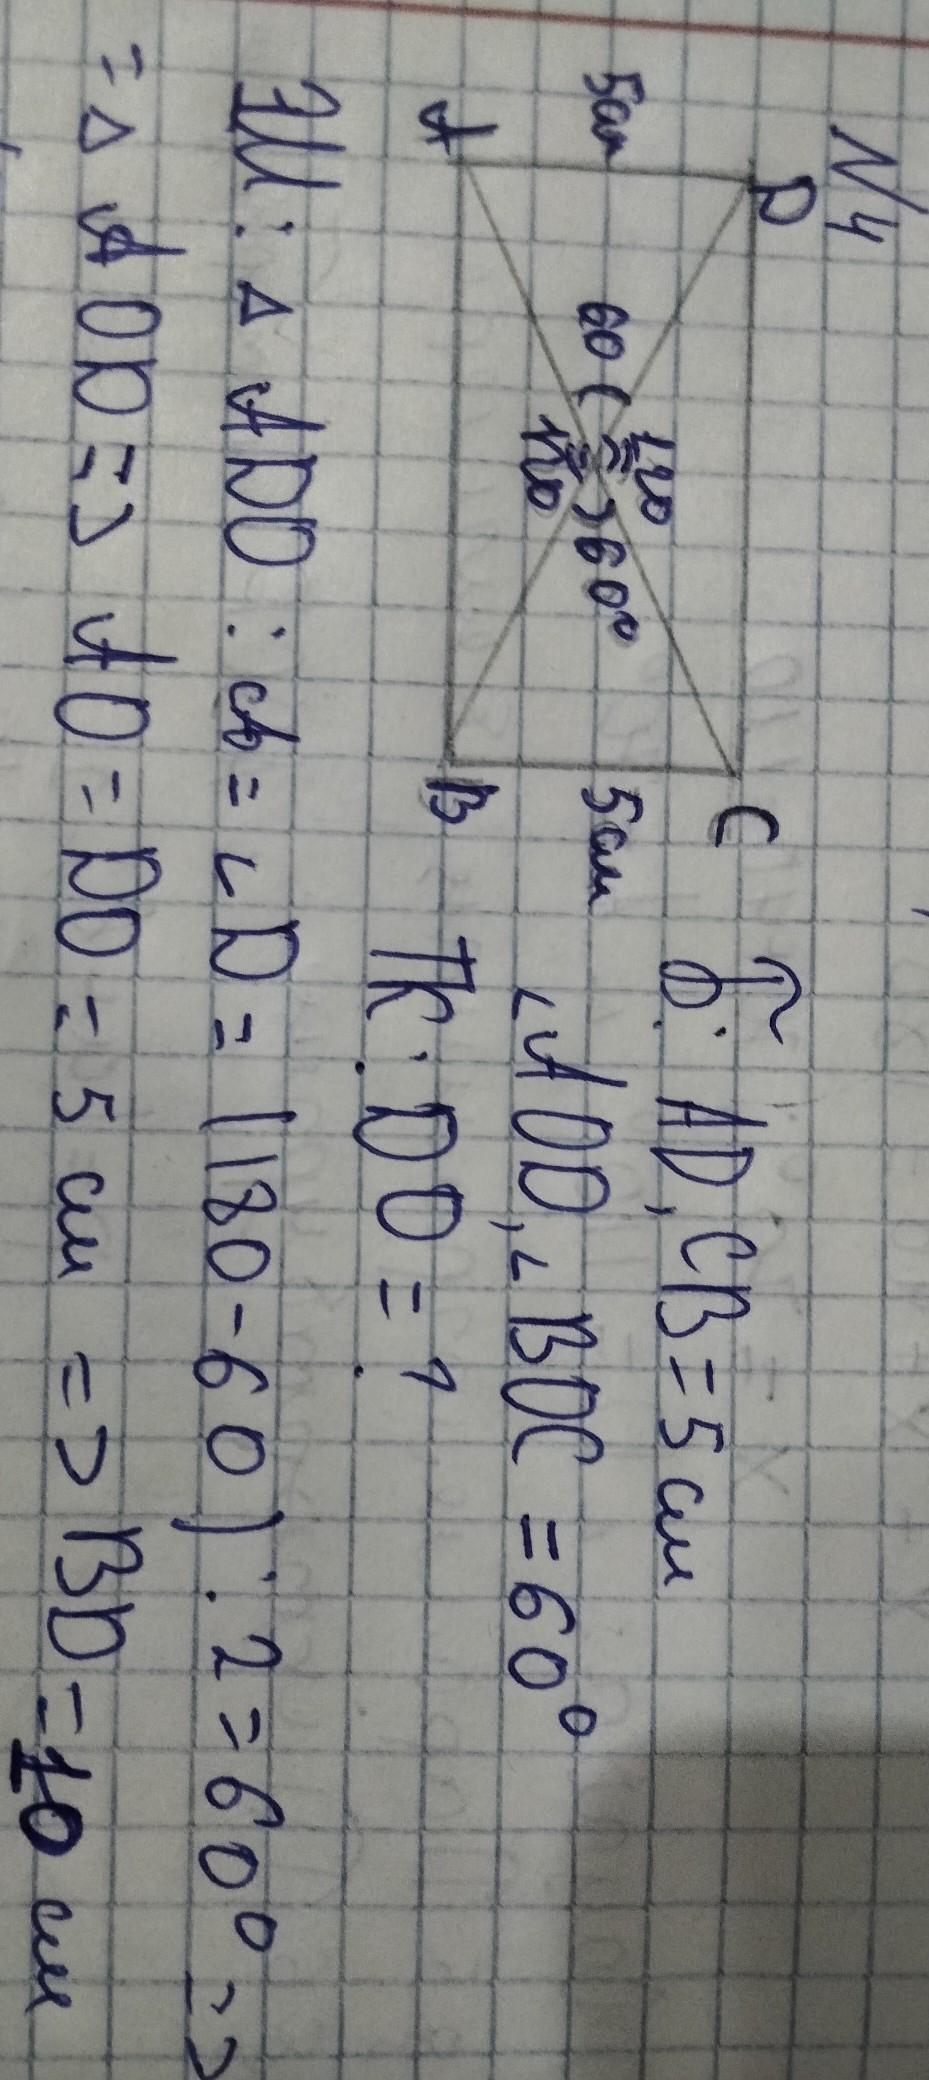 N4
D
C
5см
5см
120
60
60°
120
A
B
Б: AD, CB = 5 см
∠AOD, ∠BOC = 60°
ТК: DO = ?
Ш: △ ADO: ∠A = ∠D = (180-60):2 = 60° =>
= △ AOD => AO = DO = 5 см => BD = 10 см